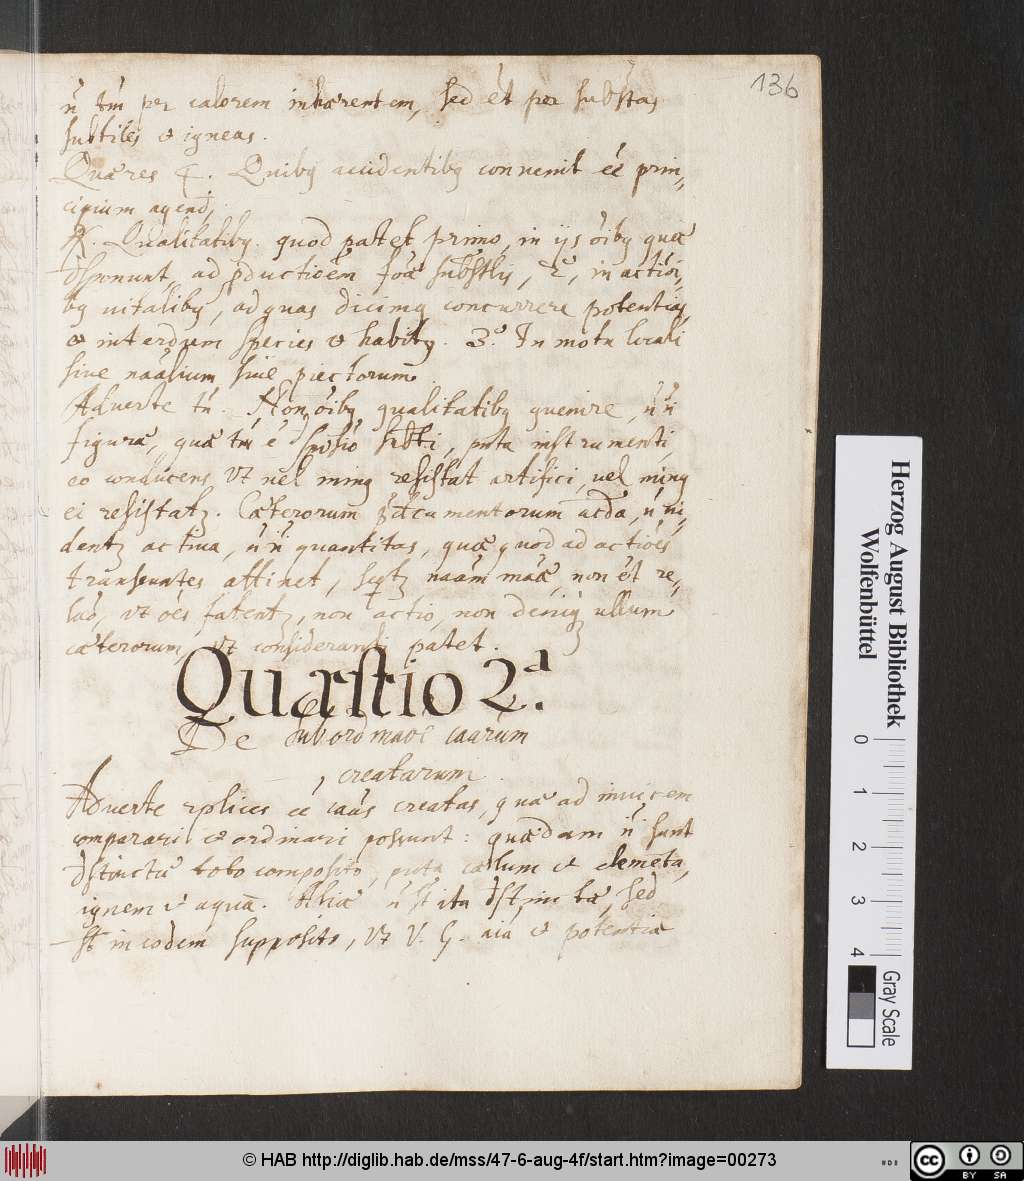 136
ñ tm̃ per calorem inhærentem, sed ét per subst̃as
subtiles & igneas.
Quæres 4. Quibq accidentibq convenit eé prin„
cipium agendj,
R. Qualitatibq. quod patet primo, in ijs õibq quæ
dsponunt, ad pductioẽm foæ subst̃lis, 2°, in actioi„
bq vitalibq, ad quas dicimq concurrere potentias
& interdum species & habitq. 3.° In motu locali
sive naãlium sive piectorum.
Adverte tñ. Non õibq qualitatibq quenire, ñ ñ
figuræ, quæ tm̃ é dsposio subti, puta instrumenti,
eo conducens, vt vel minq resistat artifici, vel minq
ei resistatz. Cæterorum accña, ñ vi„
dentz activa, ñ ñ quantitas, quæ quod ad actioẽs
transeuntes attinet, seqtz naãm maæ, non ét re„
laõ, vt oẽs fatentz, non actio, non deniq ullum
cæterorum, vt consideranti patet.
Quæstio 2.ª
De subordinaoẽ caãrum
creatarum.
Adverte rplices eé caãs creatas, quæ ad invicem
comparari & ordinari possunt: quædam ñ sunt
dstinctæ toto composito, puta cælum & elemẽta,
ignem & aquã. Aliæ ñ st ita dstinctæ, sed
st in eodem supposito, vt V. G. aiã & potentiæ
Herzog August Bibliothek
Wolfenbüttel
0 1 2 3 4
Gray Scale
© HAB http://diglib.hab.de/mss/47-6-aug-4f/start.htm?image=00273
cc BY SA